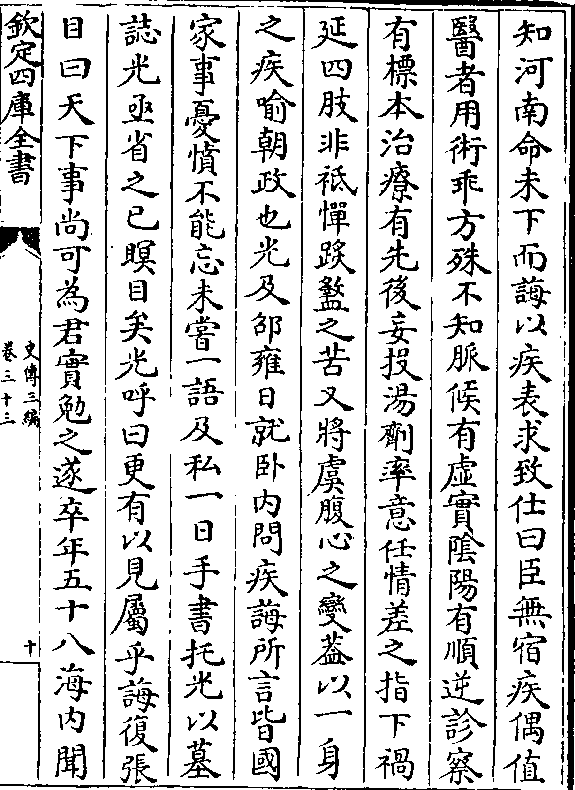 知河南命未下而誨以疾表求致仕曰臣無宿疾偶值
醫者用術乖方殊不知脈候有虛實陰陽有順逆診察
有標本治療有先後妄投湯劑率意任情差之指下禍
延四肢非祗憚跋盩之苦又將虞腹心之變葢以一身
之疾喻朝政也光及邵雍日就卧内問疾誨所言皆國
家事憂憤不能忘未嘗一語及私一日手書托光以墓
誌光亟省之已瞑目矣光呼曰更有以見屬乎誨復張
目曰天下事尚可為君實勉之遂卒年五十八海内聞
欽定四庫全書
史傳三編
卷三十三
十